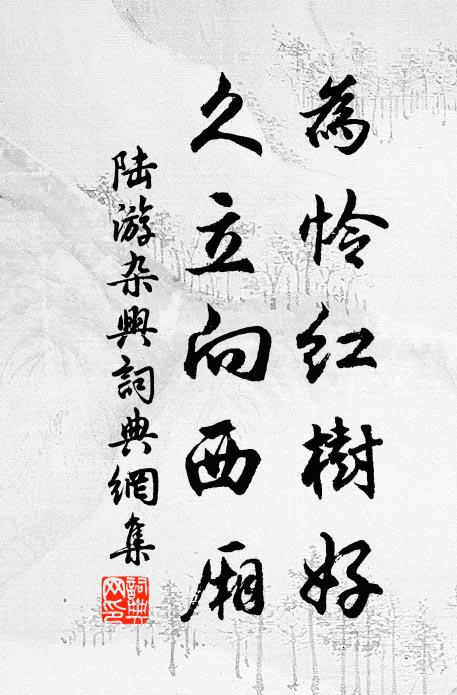 為怜红樹好
久立向西厢
陆游杂興詞典網集
詞典